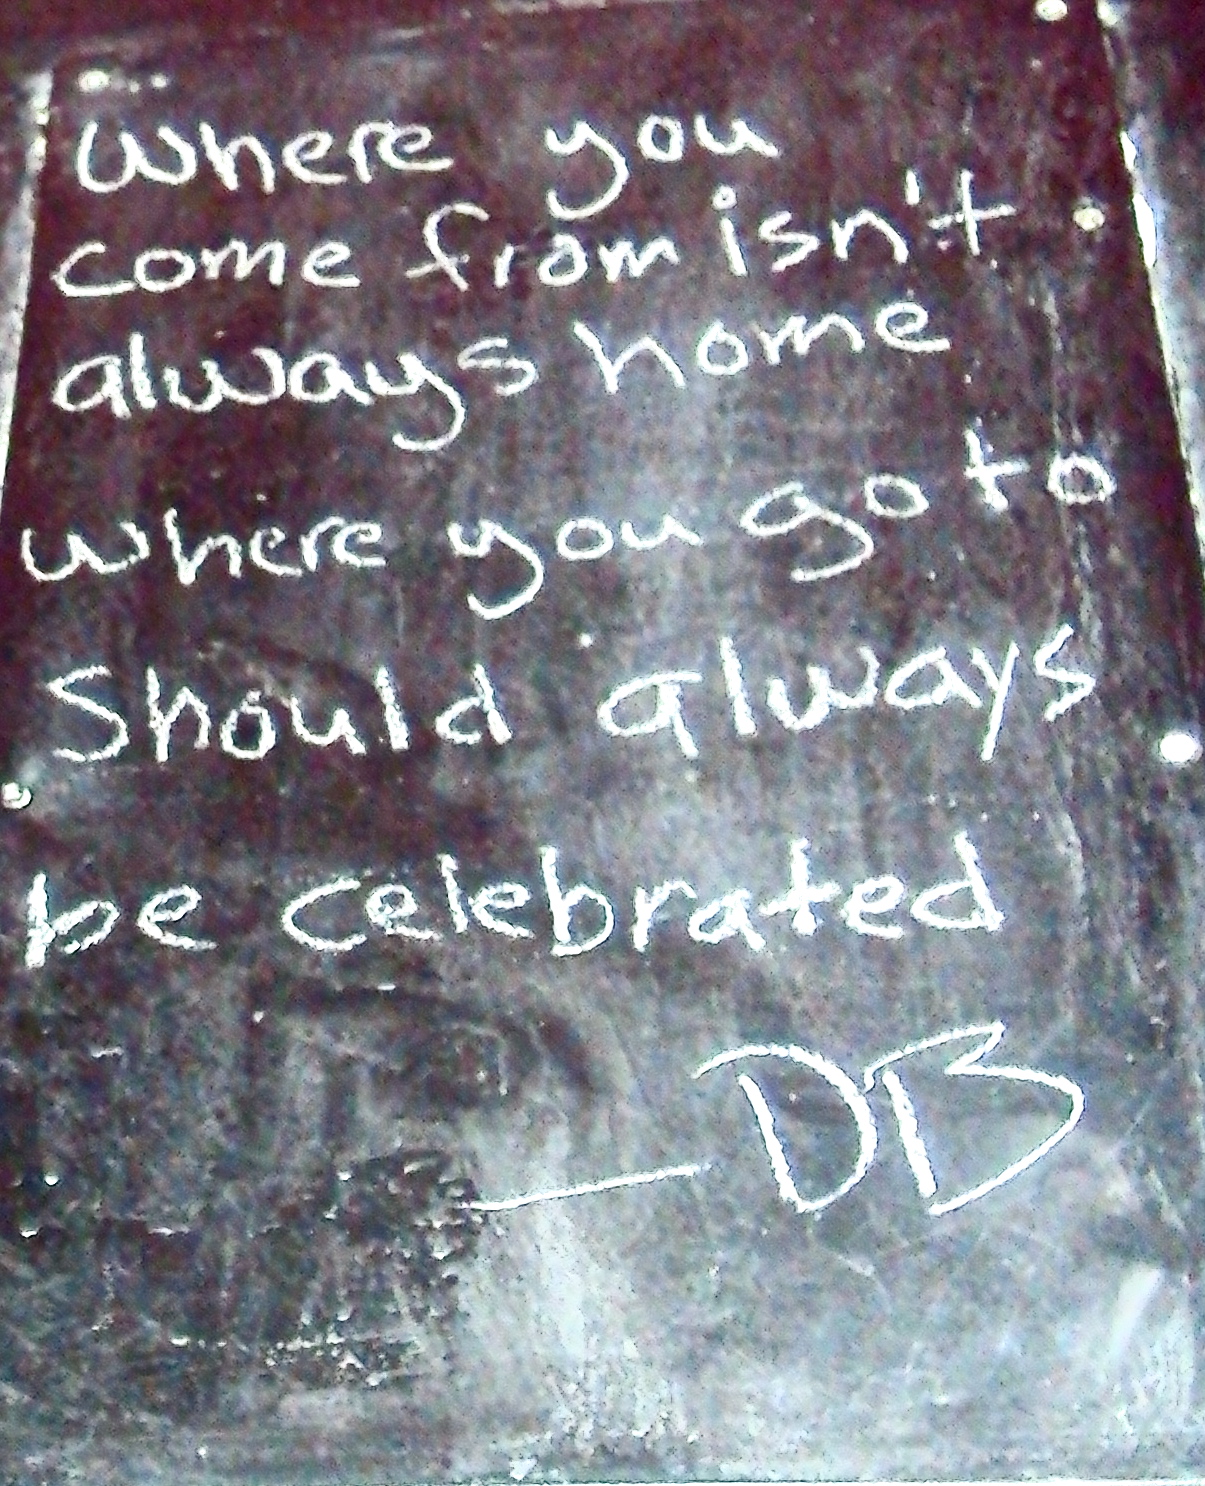 Where you
come from isn't
always home
where you go to
Should always
be celebrated
— DB